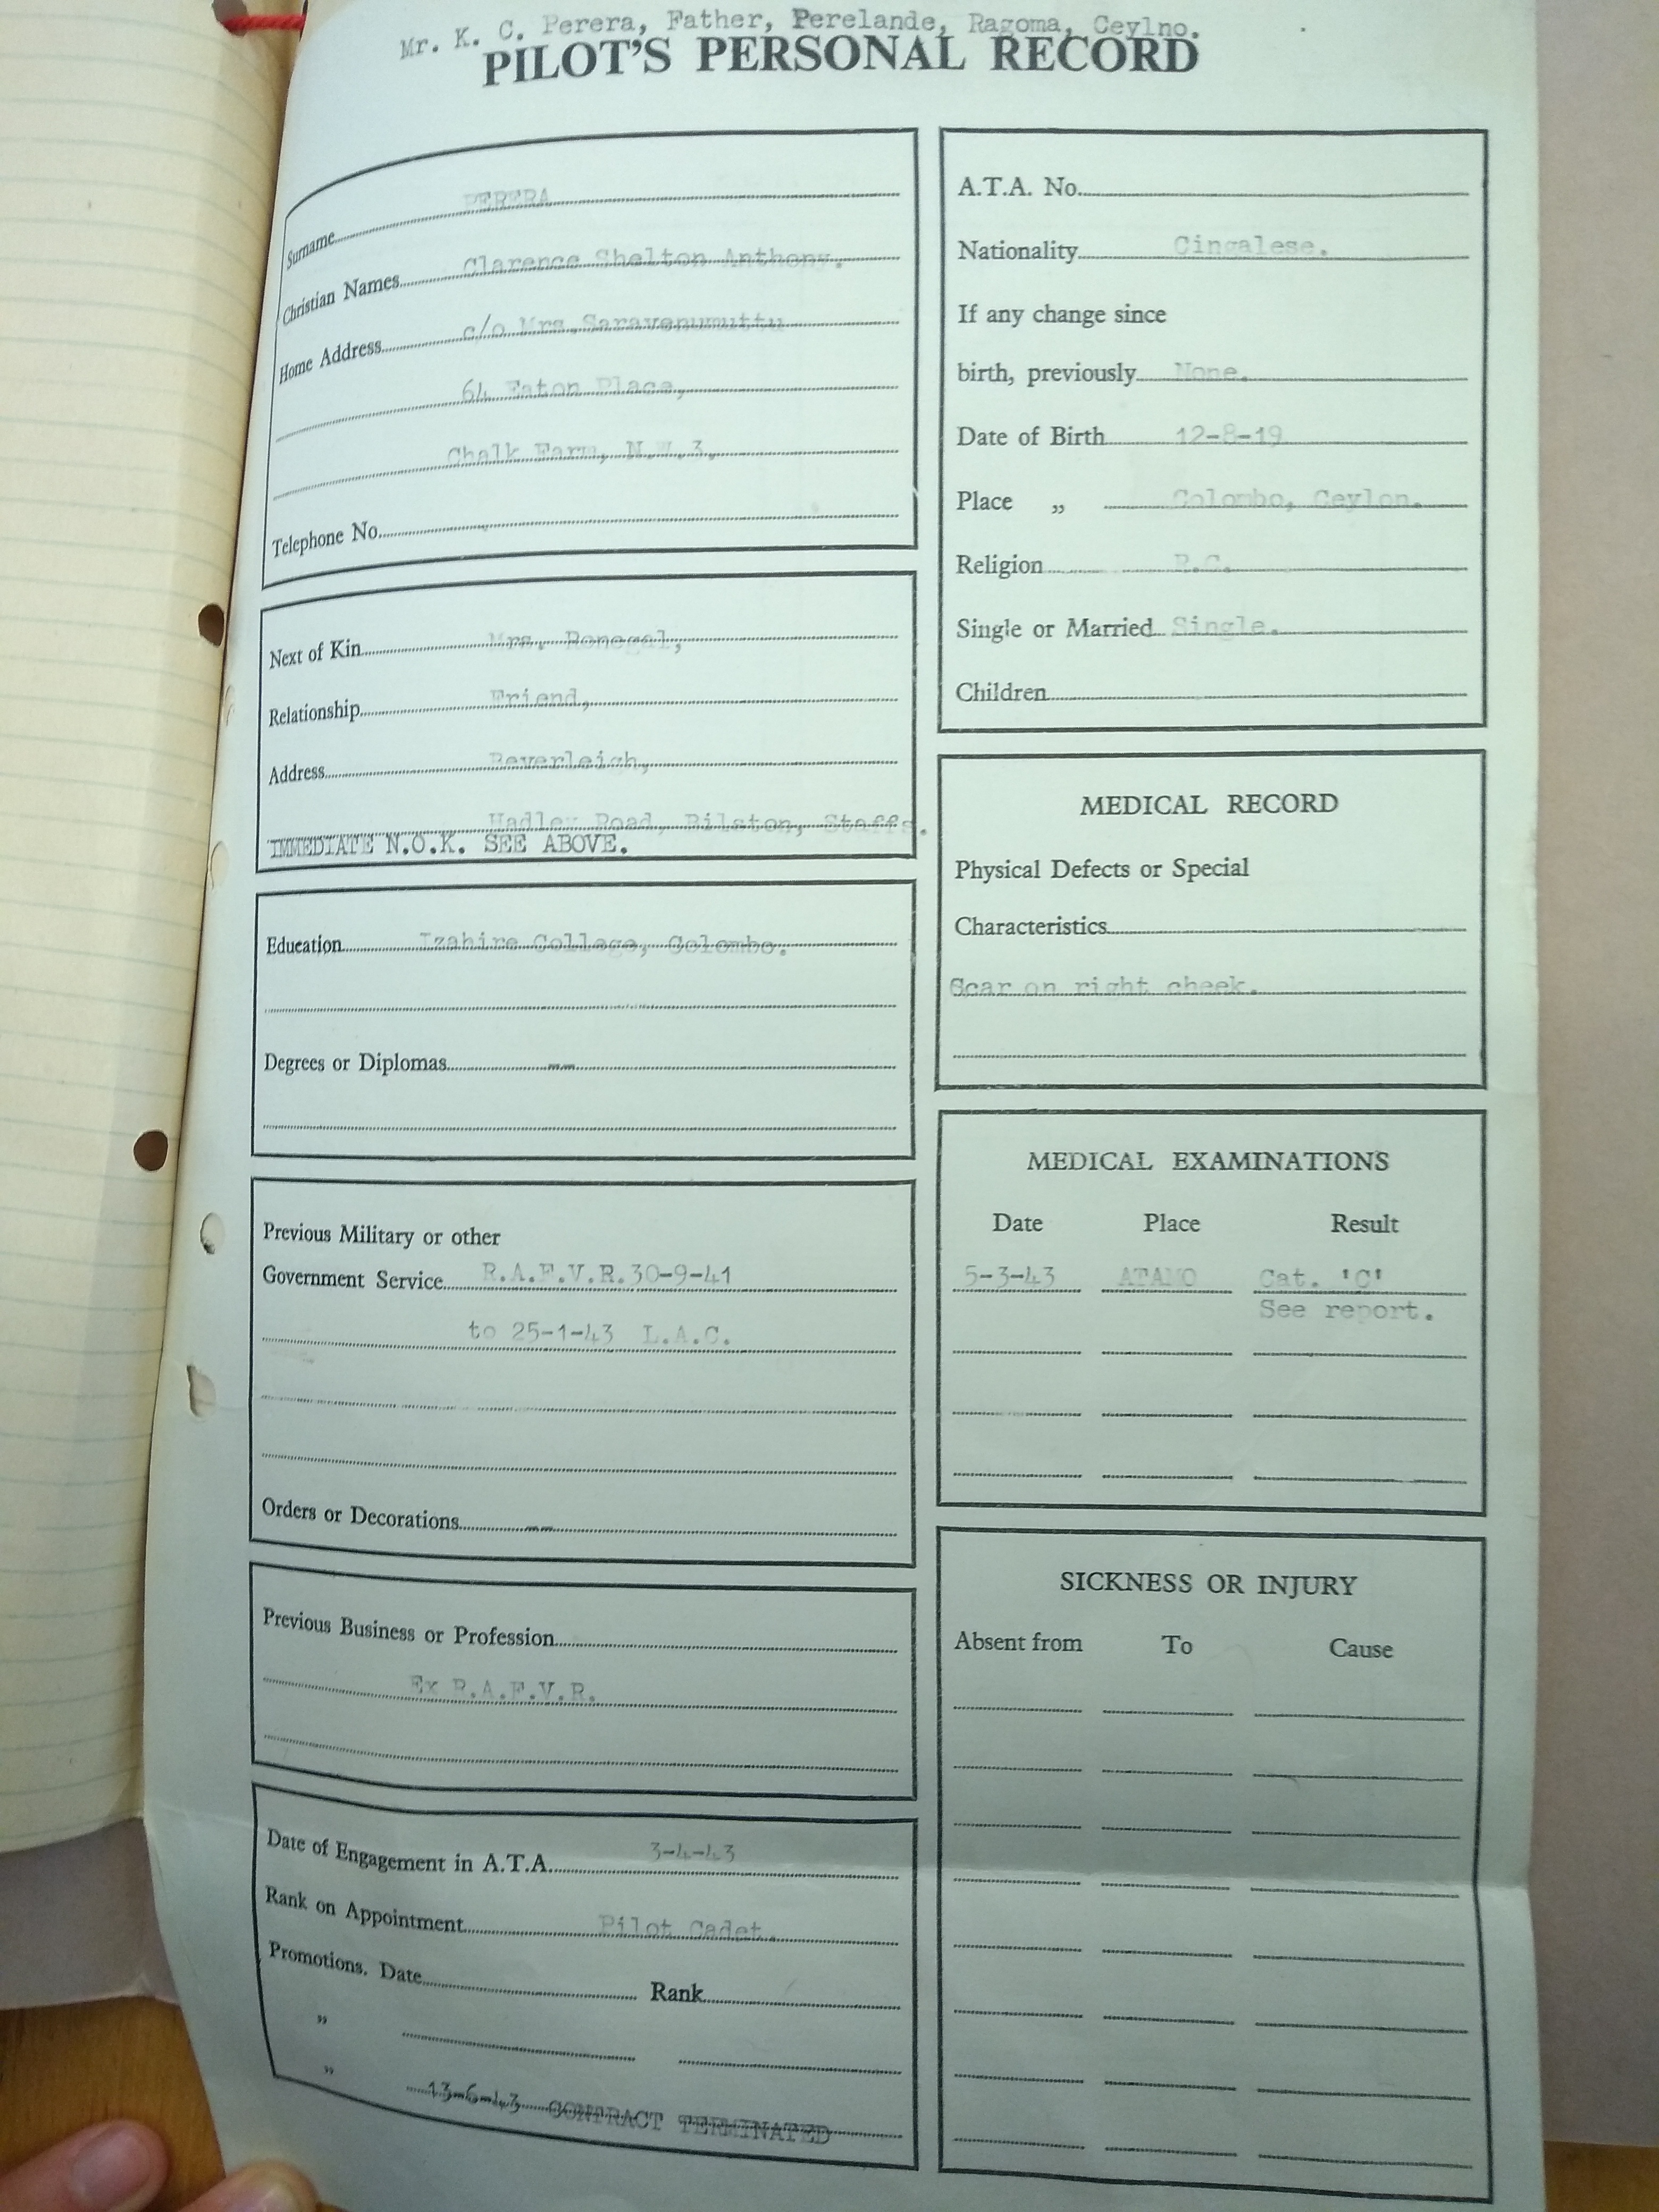 Mr. K. C. Perera, Father, Perelande, Ragoma, Ceylno.
PILOT'S PERSONAL RECORD
Surname PERERA
Christian Names Clarence Shelton Anthony.
Home Address c/o Mrs. Saravenumuttu
64 Eaton Place,
Chalk Farm, N.W.3.
Telephone No.
Next of Kin Mrs. Ronegal,
Relationship Friend,
Address Beverleigh,
Hadley Road, Bilston, Staffs.
IMMEDIATE N.O.K. SEE ABOVE.
Education Izahire College, Colombo.
Degrees or Diplomas --
Previous Military or other
Government Service R.A.F.V.R. 30-9-41
to 25-1-43 L.A.C.
Orders or Decorations --
Previous Business or Profession
Ex R.A.F.V.R.
Date of Engagement in A.T.A. 3-4-43
Rank on Appointment Pilot Cadet.
Promotions. Date Rank
„
„ 13-6-43 CONTRACT TERMINATED
A.T.A. No.
Nationality Cingalese.
If any change since
birth, previously None.
Date of Birth 12-8-19
Place „ Colombo, Ceylon.
Religion R.C.
Single or Married Single.
Children
MEDICAL RECORD
Physical Defects or Special
Characteristics
Scar on right cheek.
MEDICAL EXAMINATIONS
Date Place Result
5-3-43 ATAMO Cat. 'C'
See report.
SICKNESS OR INJURY
Absent from To Cause